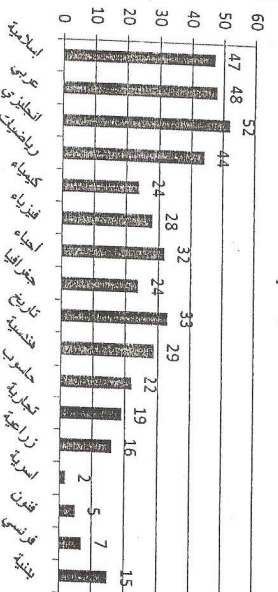 60
50
40
30
20
10
0
47
48
52
44
24
28
32
24
33
29
22
19
16
2
5
7
15
اسلامية
عربي
انجليزي
رياضيات
كيمياء
فيزياء
احياء
جغرافيا
تاريخ
هندسية
حاسوب
تجارية
زراعية
اسرية
فنون
فرنسي
بدنية